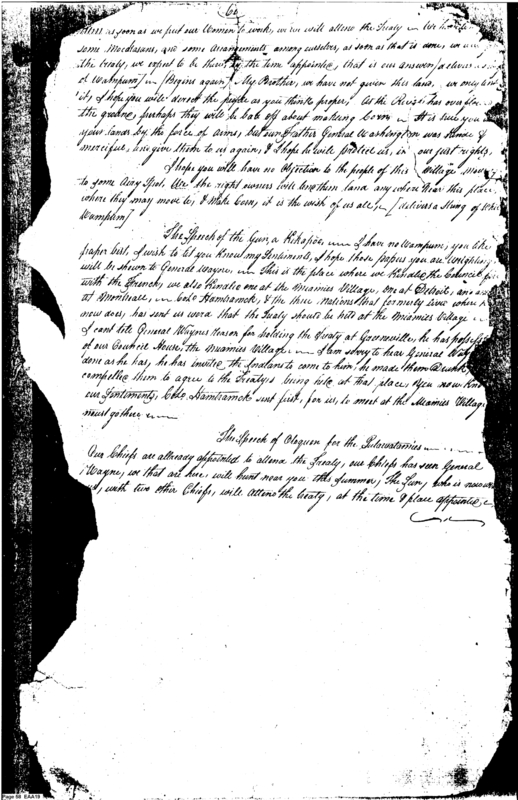 60
as soon as we put our Women to work, we will attend the Treaty We
some Mockasans, and some arrangements among ourselves, as soon as that is done, we
the treaty, we expect to be there by the time appointed, that is our answer [delivers a
of Wampum] [Begins again] My Brother, we have not given this land, we may
it, I hope you will direct the people as you think proper, As the River has over
the ground, perhaps they will be late off about making Corn It is true you
your lands by the force of arms, but our Father General Washington was kind &
merciful, and give them to us again, & I hope he will protect us, in our just rights,
I hope you will have no Objection to the people of this Village
to some dry Spot, We the right owners will them land any where near this place,
where they may move to, & make Corn, it is the wish of us all, [delivers a String of White
Wampum]
The Speech of the Gun, a Kikapoo, I have no Wampum, you like
paper best, I wish to let you know my Sentiments, I hope those papers you are writing
will be shown to General Wayne, This is the place where we Kindle the Council
with the French, we also Kindle one at the Miamies Village, one at Detroit, and
at Montreal, Colo Hamtramck, & the three Nations that formerly lived where
now does, has sent us word that the Treaty should be held at the Miamies Village
I cant tell General Waynes reason for holding the Treaty at Greeneville, he has
of our Council House, the Miamies Village I am sorry to hear General
done as he has, he has invited the Indians to come to him, he made them Drunk,
compelled them to agree to the Treaty's being held at that place, You now
our Sentiments, Colo Hamtramck sent first, for us, to meet at the Miamies Village
must go there
The Speech of for the Putawatamies
Our Chiefs are allready appointed to attend the Treaty, our Chiefs has seen General
Wayne, we that are here, will hunt near you this Summer, The Sun, who is now
with two other Chiefs, will attend the treaty, at the time & place appointed,
Page 58 EAA18